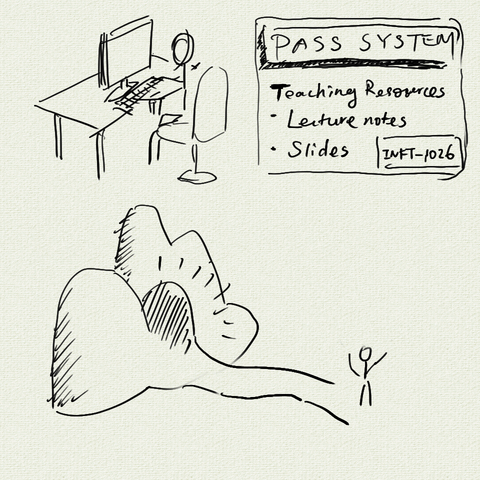 PASS SYSTEM
Teaching Resources
• Lecture notes
• Slides
INFT-1026